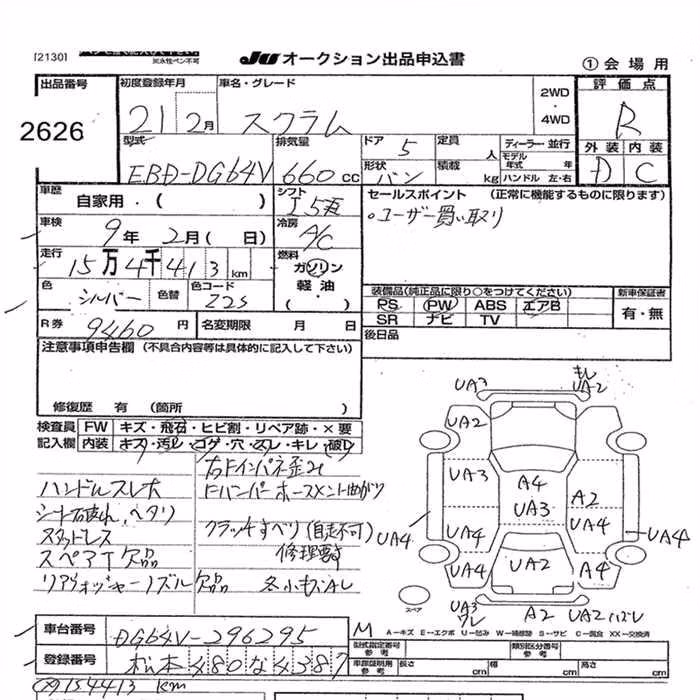 [2130]
JU オークション出品申込書
① 会場用
出品番号
2626
初度登録年月
21 2月
車名・グレード
スクラム
2WD
・
4WD
評価点
R
外装 内装
D C
型式
EBD-DG64V
排気量
660 cc
ドア
5
形状
バン
定員
人
積載
kg
ディーラー・並行
モデル年式 年
ハンドル 左・右
車歴
自家用・( )
シフト
I5速
セールスポイント (正常に機能するものに限ります)
○ユーザー買い取り
車検
9年 2月( 日)
冷房
A/C
走行
15万4千413km
燃料
ガソリン
軽油
( )
色
シルバー
色替
色コード
Z2S
装備品(純正品に限り○をつけてください)
PS PW ABS エアB
SR ナビ TV
新車保証書
有・無
R券
9460円
名変期限 月 日
後日品
注意事項申告欄 (不具合内容等は具体的に記入して下さい)
修復歴 有 (箇所 )
検査員記入欄
FW キズ・飛石・ヒビ割・リペア跡・×要
内装 キズ・汚レ・コゲ・穴・スレ・キレ・破レ
右Fインパネ歪み
ハンドルスレ大
Fバンパーホースメント曲がり
シート破れ、ヘタリ
スタッドレス
クラッチすべり(自走不可)
修理要す
スペアT欠品
リアウォッシャーノズル欠品
UA3
キレ
UA2
UA2
UA3
A4
UA3
A2
UA4
UA4
UA4
UA4
UA4
UA2
A4
スペア
UA3
ワレ
A2
UA2 ハズレ
M
A-キズ E-エクボ U-凹み W-補修跡 S-サビ C-腐食 XX-交換済
車台番号
DG64V-296295
登録番号
松本480な4387
型式指定番号
参考
類別区分番号
参考
車庫証明用
参考
長さ cm
幅 cm
高さ cm
154413 km